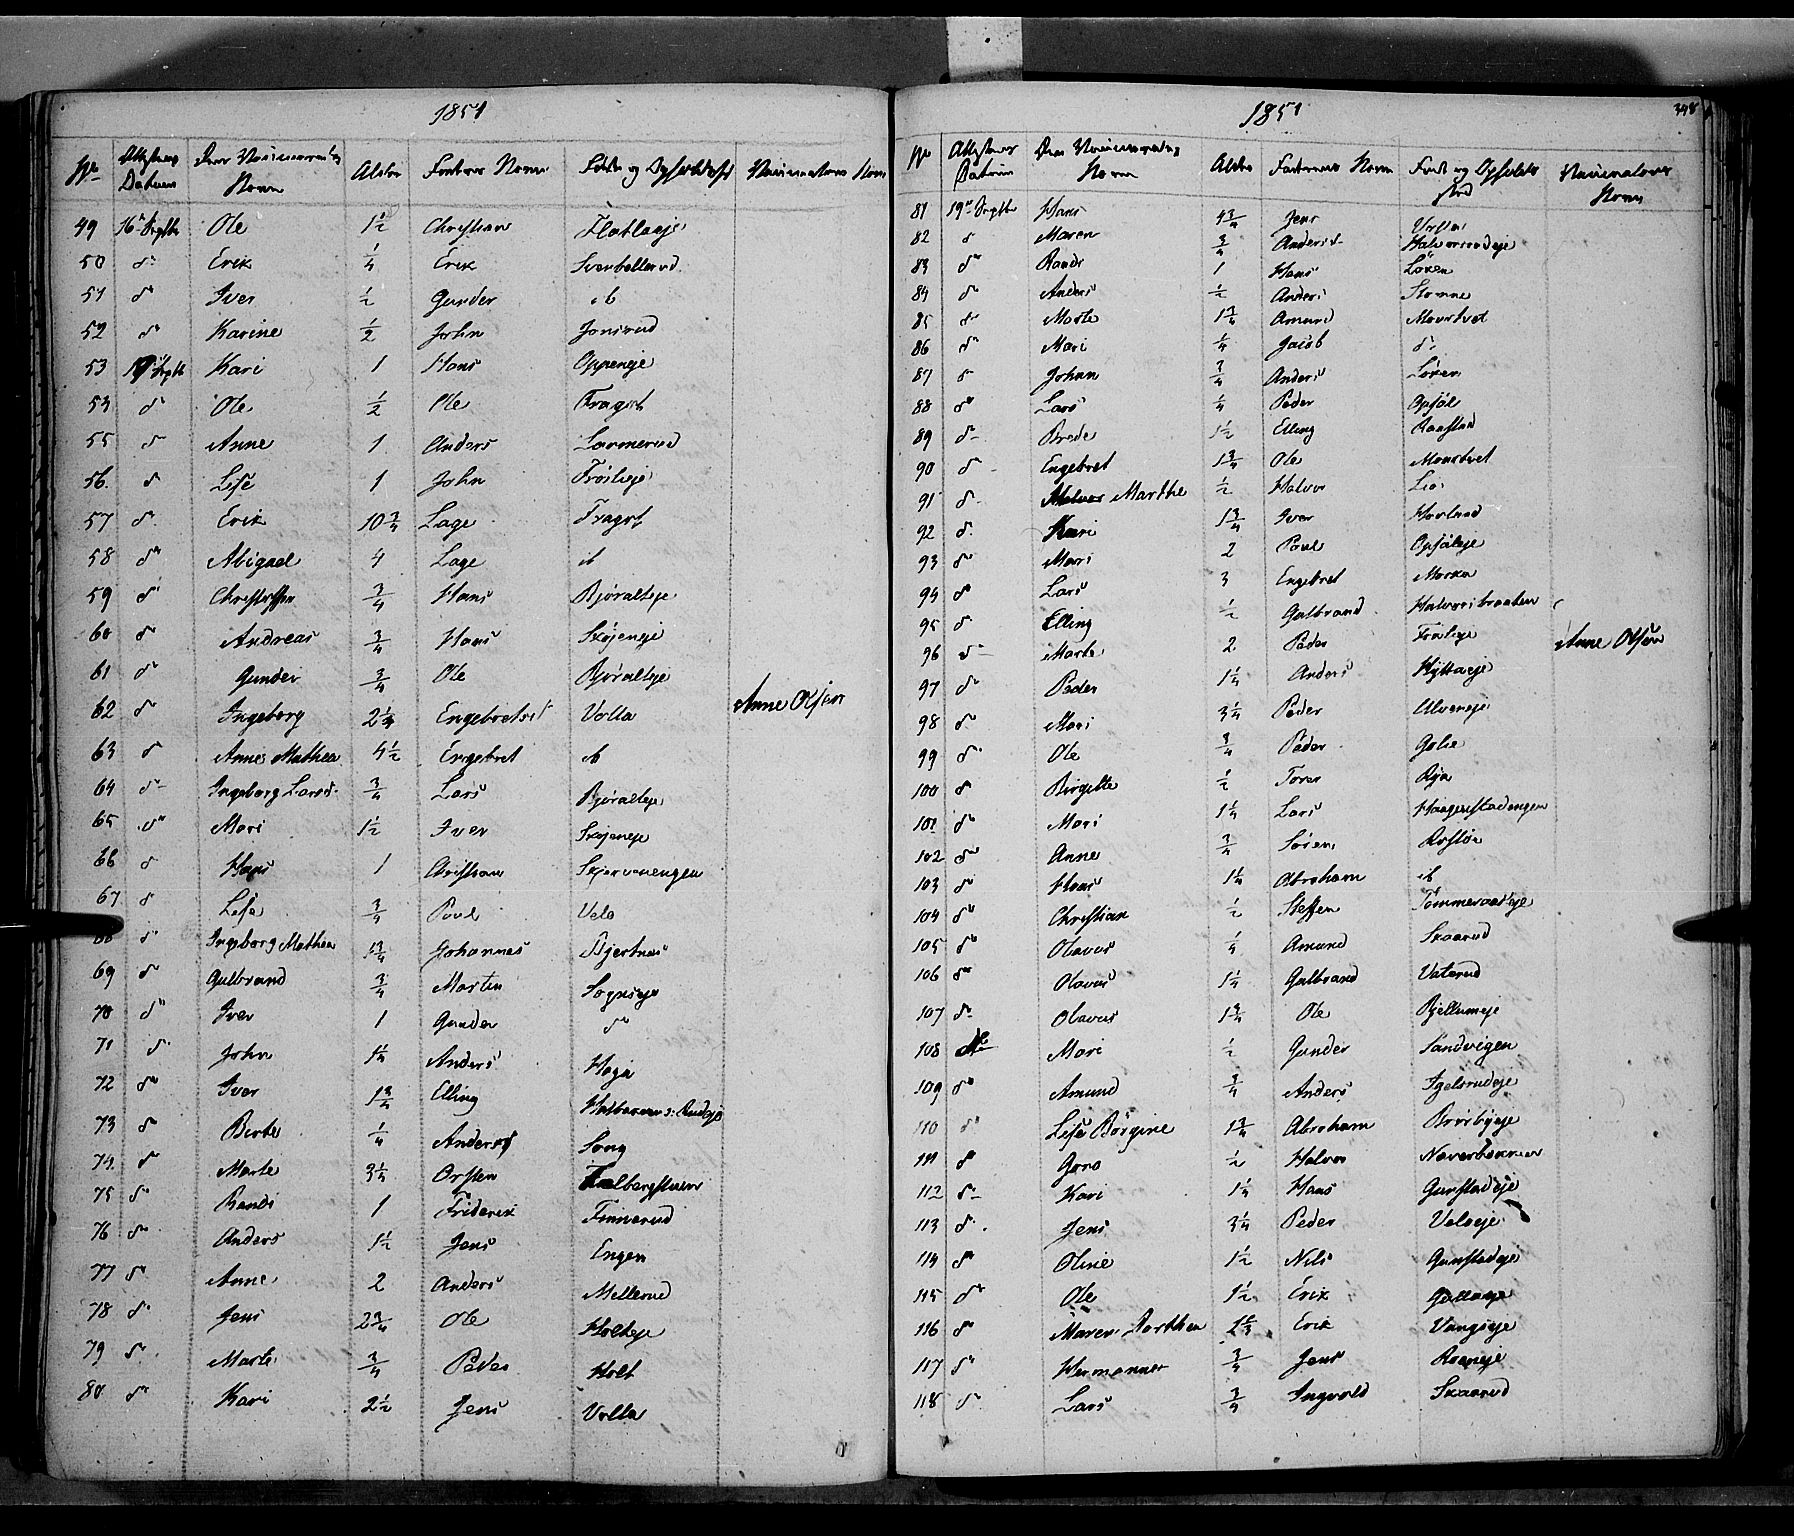 1851
No Attestens Datum Den Vaccineredes Navn Alder Faders Navn Føde og Opholdssted Vaccinateurs Navn
49 16 Septbr Ole 1½ Christian Flatlaeje
50 do Erik ¼ Erik Svenbellerud
51 do Iver ½ Gunder ib
52 do Karine ½ John Jonsrud
53 19 Septb Kari 1 Hans Oppeneje
54 do Ole ½ Ole Fragot
55 do Anne 1 Anders Lammerud
56 do Lise 1 John Frøiseje
57 do Erik 10¾ Lage Fragot
58 do Abigael 4 Lage ib
59 do Christoffer ¾ Hans Bjøralteje
60 do Andreas ¾ Hans Skøieneje
61 do Gunder ¾ Ole Bjøralteje
62 do Ingeborg 2¼ Engebretsd Volla Anne Olsen
63 do Anne Mathea 4½ Engebret ib
64 do Ingeborg Larsd ¾ Lars Bjøralteje
65 do Mari 1½ Iver Skøieneje
66 do Hans 1 Christian Skjervenengen
67 do Lise ¾ Povel Velo
68 do Ingeborg Mathea 1¾ Johannes Bjertnes
69 do Gulbrand ¾ Martin Sognseje
70 do Iver 1 Gunder do
71 do John 1¼ Anders Haga
72 do Iver 1¾ Elling Halvorsrudeje
73 do Berte ¼ Anders Song
74 do Marte 3¼ Orsten
75 do Randi 1 Friderik Finnerud
76 do Anders 1½ Jens Engen
77 do Anne 2 Anders Mellerud
78 do Jens 2¾ Ole Holteje
79 do Marte ¾ Peder Holt
80 do Kari 2½ Jens Volla
1851 348
No Attestens Datum Den Vaccineredes Navn Alder Faderens Navn Føde og Opholdssted Vaccinateurs Navn
81 19 Septbr Hans 4¾ Jens Volla
82 do Maren ¾ Anders Halvorsrudeje
83 do Randi 1 Hans Løken
84 do Anders ½ Anders Stomne
85 do Marte 1¾ Amund Moustvet
86 do Mari ¼ Jacob do
87 do Johan ¾ Anders Løken
88 do Lars ¼ Peder Opsal
89 do Brede 1½ Elling Raastad
90 do Engebret 1¾ Ole Moustvet
91 do Marthe ½ Halvor Lie
92 do Kari 1¾ Iver Hovland
93 do Mari 2 Povel Opsaleje
94 do Lars 3 Engebret Morka
95 do Elling ½ Gulbrand Halvorsbraaten
96 do Marte 2 Peder Froseje Anne Olsen
97 do Peder 1¼ Anders Hyttaeje
98 do Mari 3¼ Peder Ulveneje
99 do Ole ¾ Peder Golie
100 do Birgitte ½ Tover Rya
101 do Mari 1¼ Lars Haagenstadengen
102 do Anne ¾ Søren Rostøe
103 do Hans 1¼ Abraham ib
104 do Christian ½ Steffen Tommeraaseje
105 do Olavus ¼ Amund Skaarud
106 do Olavus 1¼ Gulbrand Vaterud
107 do Olavus 1¾ Ole Bjellumeje
108 do Mari ½ Gunder Sandvigen
109 do Amund ¾ Anders Igelsrudeje
110 do Lise Børgine 1¾ Abraham Brorbyeje
111 do Goro ½ Halvor Naverbakken
112 do Kari 1¼ Hans Gunstadeje
113 do Jens 3¼ Peder Veloeje
114 do Oline 1½ Nils Gunstadeje
115 do Ole 1½ Erik
116 do Maren Dorthea Erik Vangseje
117 do Hermanus ¾ Jens Roeneje
118 do Lars ¾ Ingvold Skaarud